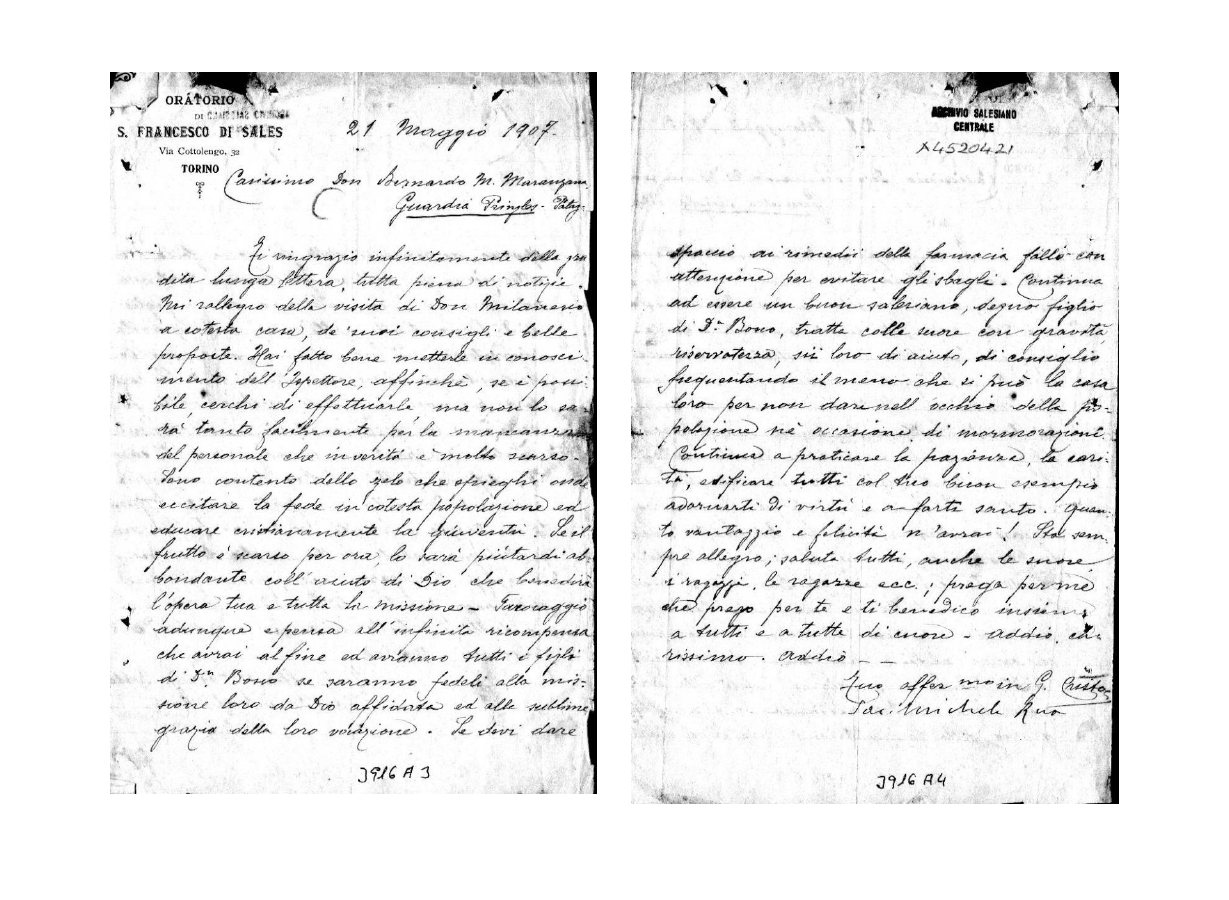 ORATORIO
DI
S. FRANCESCO DI SALES
Via Cottolengo, 32
TORINO
21 Maggio 1907.
Carissimo Don Bernardo M. Maranzana
Guardia Pringles - Patag.
Ti ringrazio infinitamente della gra
dita lunga lettera, tutta piena di notizie.
Mi rallegro della visita di Don Milanesio
a cotesta casa, de' suoi consigli e belle
proposte. Hai fatto bene metterle in conosci
mento dell'Ispettore, affinchè, se è possi
bile, cerchi di effettuarle, ma non lo sa
rà tanto facilmente per la mancanza
del personale che in verità è molto scarso.
Sono contento dello zelo che spieghi onde
eccitare la fede in cotesta popolazione ed
educare cristianamente la gioventù. Se il
frutto è scarso per ora, lo sarà più tardi ab
bondante coll'aiuto di Dio che benedirà
l'opera tua e tutta la missione - Coraggio
adunque e pensa all'infinita ricompensa
che avrai al fine ed avranno tutti i figli
di Dn. Bosco se saranno fedeli alla mis-
sione loro da Dio affidata ed alla sublime
grazia della loro vocazione. Se devi dare
J916 A 3
ARCHIVIO SALESIANO
CENTRALE
A4520421
spaccio ai rimedii della farmacia fallo con
attenzione per evitare gli sbagli. Continua
ad essere un buon salesiano, degno figlio
di Dn Bosco, tratta colle suore con gravità,
riservatezza, sii loro di aiuto, di consiglio
frequentando il meno che si può la casa
loro per non dare nell'occhio della po-
polazione nè occasione di mormorazioni.
Continua a praticare la pazienza, la cari-
tà, edificare tutti col tuo buon esempio
adornarti di virtù e a farti santo. Quan-
to vantaggio e felicità n'avrai! Sta sem-
pre allegro; saluta tutti, anche le suore
i ragazzi, le ragazze ecc.; prega per me
che prego per te e ti benedico insieme
a tutti e a tutte di cuore - addio, ca-
rissimo. Addio - -
Tuo affez.mo in G. Cristo
Sac. Michele Rua
J916 A4